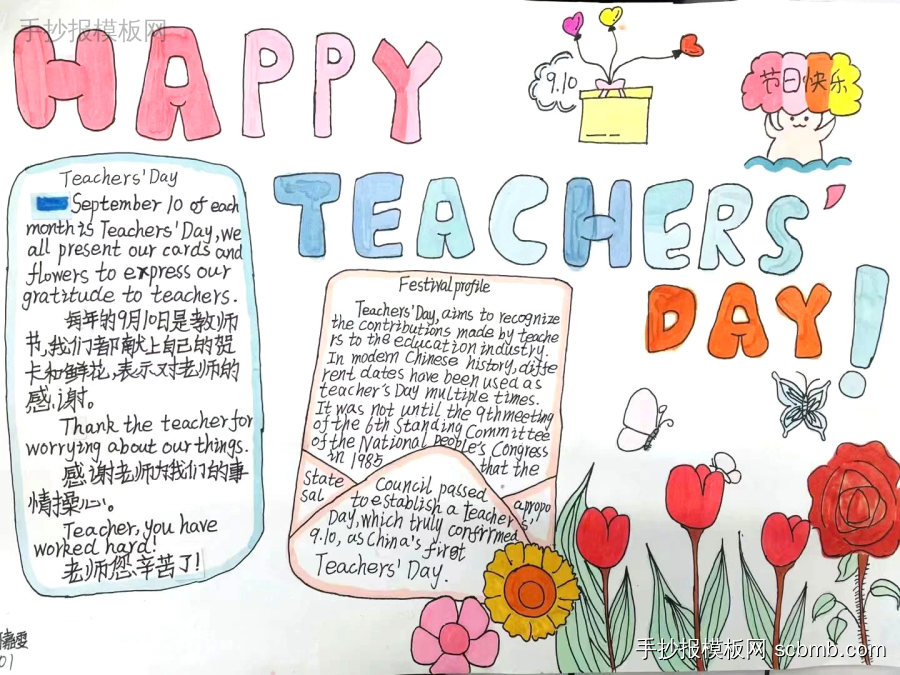 手抄报模板网
HAPPY
9.10
节日快乐
TEACHERS'
DAY!
Teachers'Day
September 10 of each
month is Teachers'Day, we
all present our cards and
flowers to express our
gratitude to teachers.
每年的9月10日是教师
节,我们都献上自己的贺
卡和鲜花,表示对老师的
感谢。
Thank the teacher for
worrying about our things.
感谢老师为我们的事
情操心。
Teacher, you have
worked hard!
老师您辛苦了!
Festival profile
Teachers'Day, aims to recognize
the contributions made by teache
rs to the education industry.
In modern Chinese history, diffe
rent dates have been used as
teacher's Day multiple times.
It was not until the 9th meeting
of the 6th Standing Committee
of the National People's Congress
in 1985 that the
State Council passed a propo
sal to establish a Teachers'
Day, which truly confirmed
9.10, as China's first
Teachers' Day.
01
手抄报模板网 scbmb.com